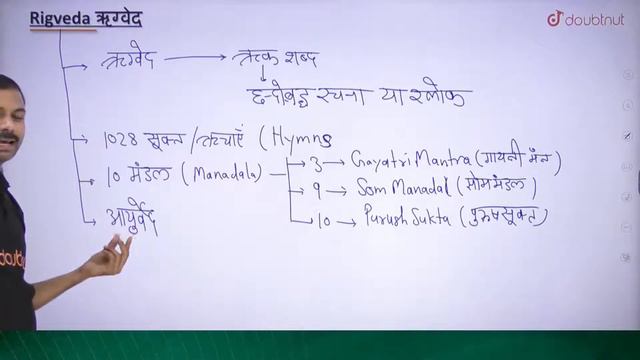 Rigveda ऋग्वेद
doubtnut
ऋग्वेद → ऋक शब्द
↓
छन्दोबद्ध रचना या श्लोक
1028 सूक्त / ऋचाएं (Hymns
10 मंडल (Manadala)
3 → Gayatri Mantra (गायत्री मंत्र)
9 → Som Manadal (सोम मंडल)
10 → Purush Sukta (पुरुषसूक्त)
आयुर्वेद